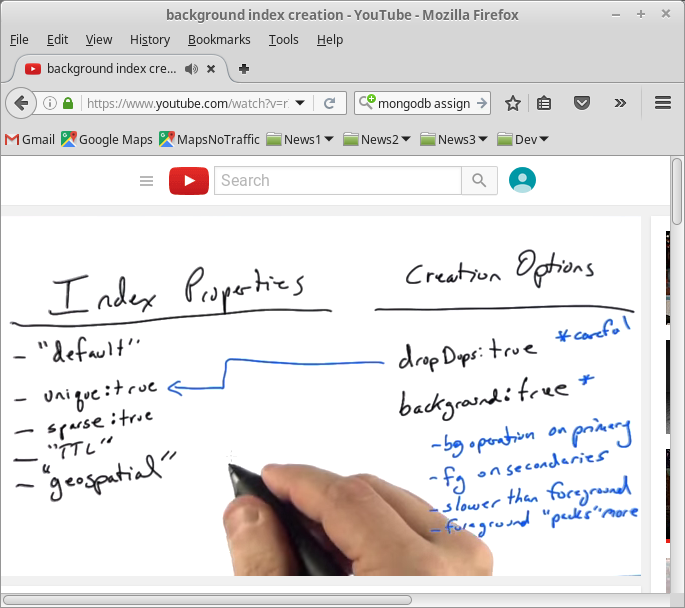 background index creation - YouTube - Mozilla Firefox
File Edit View History Bookmarks Tools Help
background index cre...
https://www.youtube.com/watch?v=r
mongodb assign
Gmail Google Maps MapsNoTraffic News1 News2 News3 Dev
Search
Index Properties
- "default"
- unique:true
- sparse:true
- "TTL"
- "geospatial"
Creation Options
dropDups:true *careful
background:true *
- bg operation on primary
- fg on secondaries
- slower than foreground
- foreground "packs" more